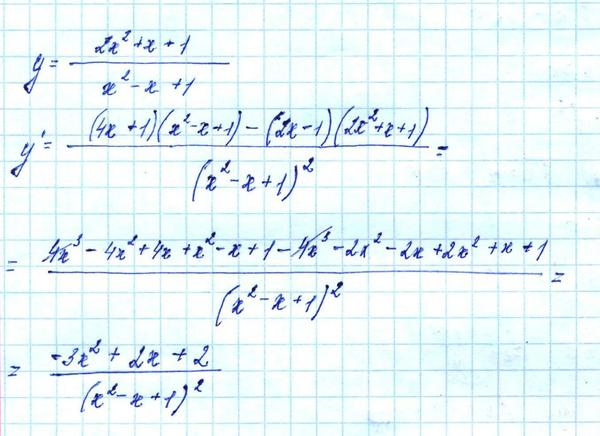 y = (2x² + x + 1) / (x² - x + 1)
y' = ((4x + 1)(x² - x + 1) - (2x - 1)(2x² + x + 1)) / (x² - x + 1)² =
= (4x³ - 4x² + 4x + x² - x + 1 - 4x³ - 2x² - 2x + 2x² + x + 1) / (x² - x + 1)² =
= (-3x² + 2x + 2) / (x² - x + 1)²